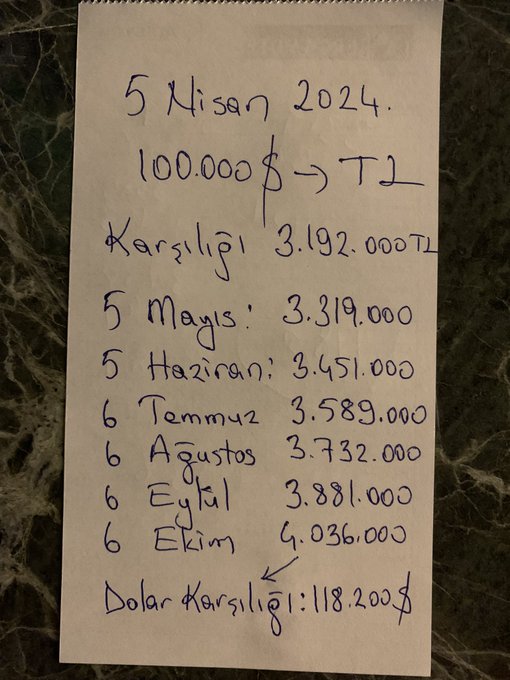 5 Nisan 2024.
100.000 $ → TL
Karşılığı 3.192.000 TL
5 Mayıs: 3.319.000
5 Haziran: 3.451.000
6 Temmuz 3.589.000
6 Ağustos 3.732.000
6 Eylül 3.881.000
6 Ekim 4.036.000
Dolar Karşılığı: 118.200 $